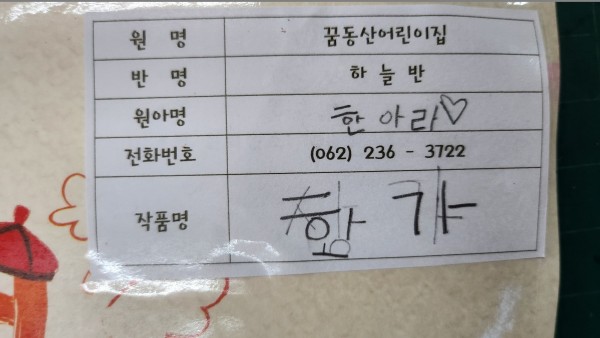 원 명 꿈동산어린이집
반 명 하 늘 반
원아명 한 아 리♡
전화번호 (062) 236 - 3722
작품명